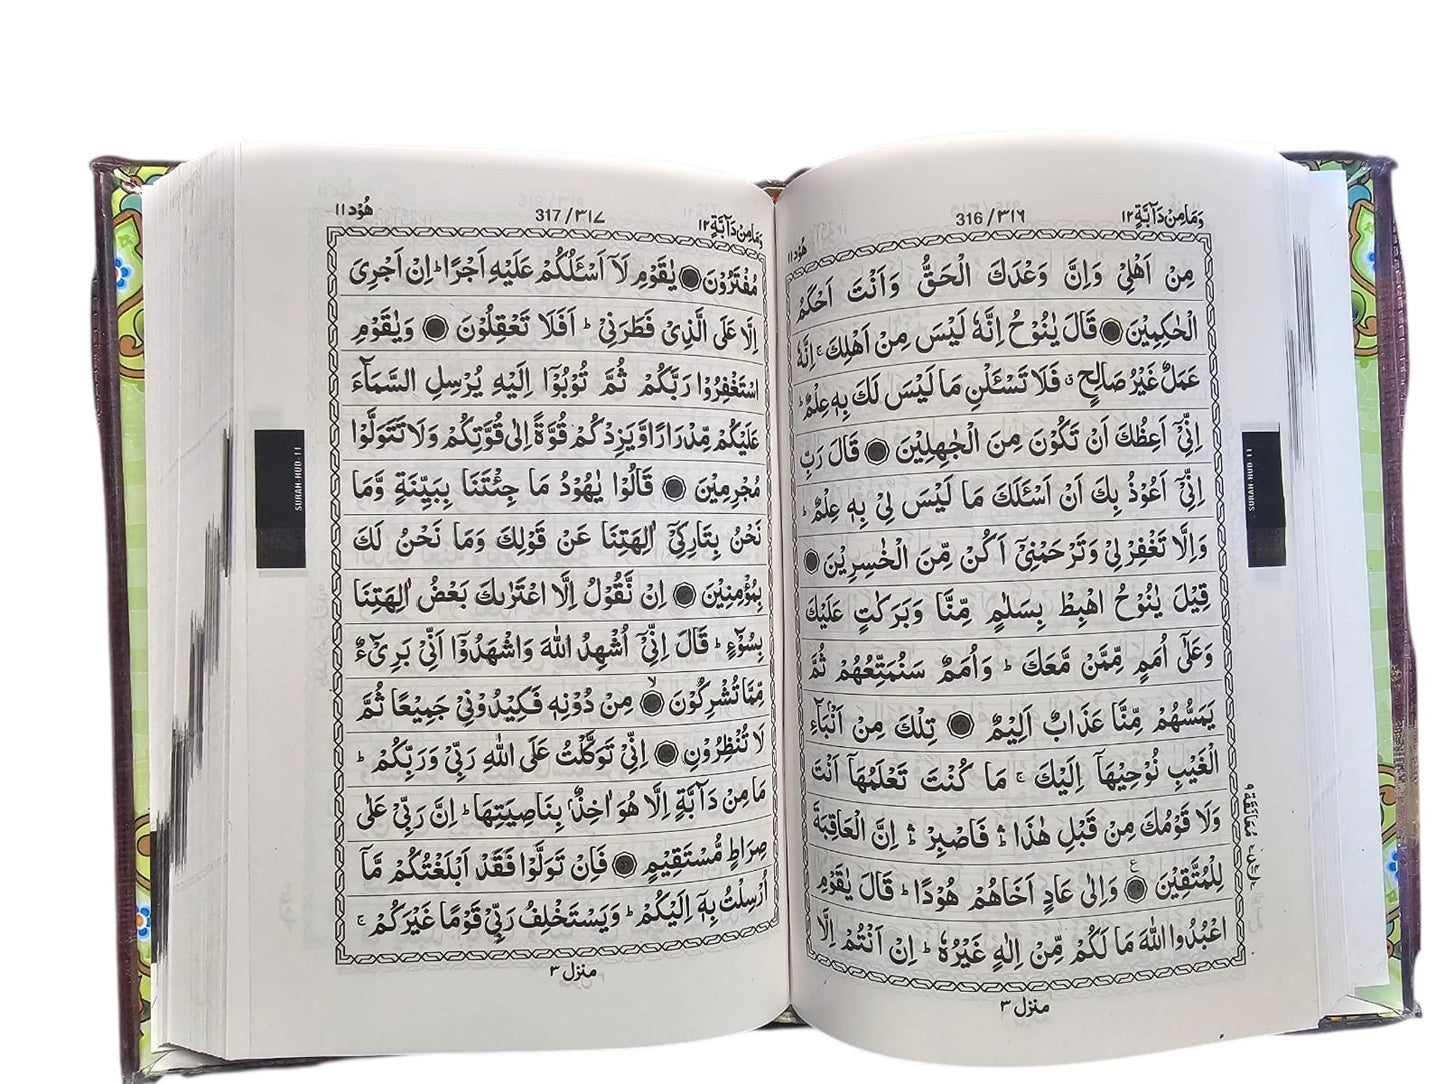 وَمَا مِنْ دَآبَّةٍ ١٢
316/٣١٦
هُوْد ١١
مِنْ اَهْلِيْ وَاِنَّ وَعْدَكَ الْحَقُّ وَاَنْتَ اَحْكَمُ
الْحٰكِمِيْنَ ۝ قَالَ يٰنُوْحُ اِنَّهٗ لَيْسَ مِنْ اَهْلِكَ ۚ اِنَّهٗ
عَمَلٌ غَيْرُ صَالِحٍ ۖ فَلَا تَسْـَٔلْنِ مَا لَيْسَ لَكَ بِهٖ عِلْمٌ ؕ
اِنِّيْۤ اَعِظُكَ اَنْ تَكُوْنَ مِنَ الْجٰهِلِيْنَ ۝ قَالَ رَبِّ
اِنِّيْۤ اَعُوْذُ بِكَ اَنْ اَسْـَٔلَكَ مَا لَيْسَ لِيْ بِهٖ عِلْمٌ ؕ
وَاِلَّا تَغْفِرْ لِيْ وَتَرْحَمْنِيْۤ اَكُنْ مِّنَ الْخٰسِرِيْنَ ۝
قِيْلَ يٰنُوْحُ اهْبِطْ بِسَلٰمٍ مِّنَّا وَبَرَكٰتٍ عَلَيْكَ
وَعَلٰۤى اُمَمٍ مِّمَّنْ مَّعَكَ ؕ وَاُمَمٌ سَنُمَتِّعُهُمْ ثُمَّ
يَمَسُّهُمْ مِّنَّا عَذَابٌ اَلِيْمٌ ۝ تِلْكَ مِنْ اَنْۢبَآءِ
الْغَيْبِ نُوْحِيْهَاۤ اِلَيْكَ ۚ مَا كُنْتَ تَعْلَمُهَاۤ اَنْتَ
وَلَا قَوْمُكَ مِنْ قَبْلِ هٰذَا ۛؕ فَاصْبِرْ ۛؕ اِنَّ الْعَاقِبَةَ
لِلْمُتَّقِيْنَ ۝ وَاِلٰى عَادٍ اَخَاهُمْ هُوْدًا ؕ قَالَ يٰقَوْمِ
اعْبُدُوا اللّٰهَ مَا لَكُمْ مِّنْ اِلٰهٍ غَيْرُهٗ ؕ اِنْ اَنْتُمْ اِلَّا
منزل ٣
SURAH-HUD-11
وَمَا مِنْ دَآبَّةٍ ١٢
317/٣١٧
هُوْد ١١
مُفْتَرُوْنَ ۝ يٰقَوْمِ لَاۤ اَسْـَٔلُكُمْ عَلَيْهِ اَجْرًا ؕ اِنْ اَجْرِيَ
اِلَّا عَلَى الَّذِيْ فَطَرَنِيْ ؕ اَفَلَا تَعْقِلُوْنَ ۝ وَيٰقَوْمِ
اسْتَغْفِرُوْا رَبَّكُمْ ثُمَّ تُوْبُوْۤا اِلَيْهِ يُرْسِلِ السَّمَآءَ
عَلَيْكُمْ مِّدْرَارًا وَّيَزِدْكُمْ قُوَّةً اِلٰى قُوَّتِكُمْ وَلَا تَتَوَلَّوْا
مُجْرِمِيْنَ ۝ قَالُوْا يٰهُوْدُ مَا جِئْتَنَا بِبَيِّنَةٍ وَّمَا
نَحْنُ بِتَارِكِيْۤ اٰلِهَتِنَا عَنْ قَوْلِكَ وَمَا نَحْنُ لَكَ
بِمُؤْمِنِيْنَ ۝ اِنْ نَّقُوْلُ اِلَّا اعْتَرٰىكَ بَعْضُ اٰلِهَتِنَا
بِسُوْٓءٍ ؕ قَالَ اِنِّيْۤ اُشْهِدُ اللّٰهَ وَاشْهَدُوْۤا اَنِّيْ بَرِيْٓءٌ
مِّمَّا تُشْرِكُوْنَ ۝ مِنْ دُوْنِهٖ فَكِيْدُوْنِيْ جَمِيْعًا ثُمَّ
لَا تُنْظِرُوْنِ ۝ اِنِّيْ تَوَكَّلْتُ عَلَى اللّٰهِ رَبِّيْ وَرَبِّكُمْ ؕ
مَا مِنْ دَآبَّةٍ اِلَّا هُوَ اٰخِذٌۢ بِنَاصِيَتِهَا ؕ اِنَّ رَبِّيْ عَلٰى
صِرَاطٍ مُّسْتَقِيْمٍ ۝ فَاِنْ تَوَلَّوْا فَقَدْ اَبْلَغْتُكُمْ مَّاۤ
اُرْسِلْتُ بِهٖۤ اِلَيْكُمْ ؕ وَيَسْتَخْلِفُ رَبِّيْ قَوْمًا غَيْرَكُمْ ۚ
منزل ٣
SURAH-HUD-11